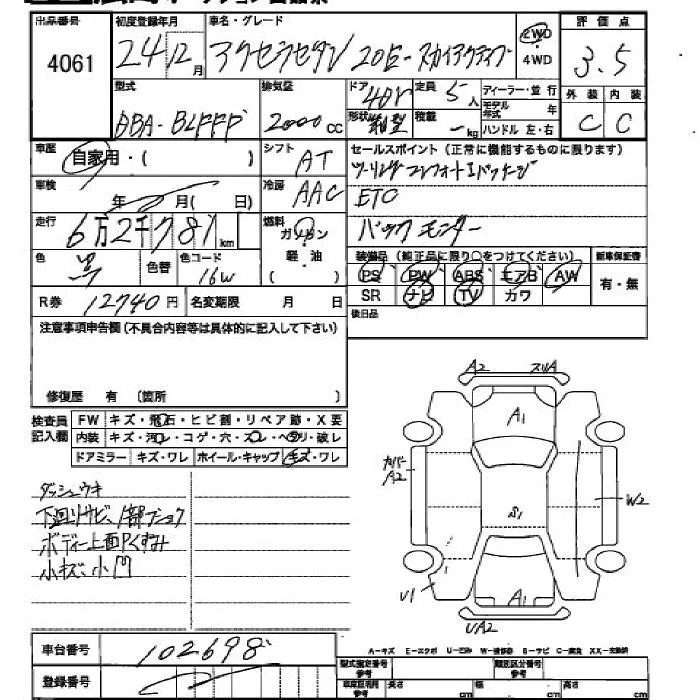 出品番号 初度登録年月 車名・グレード 評価点
4061 24 12月 アクセラセダン 20E-スカイアクティブ 2WD・4WD 3.5
型式 排気量 ドア 40r 定員 5人 ディーラー・並行 外装 内装
モデル年式 年
DBA-BLFFP 2000cc 形状 箱型 積載 -kg ハンドル 左・右 C C
車歴 自家用・( ) シフト AT セールスポイント(正常に機能するものに限ります)
車検 年 月( 日) 冷房 AAC ツーリングコンフォートパッケージ
ETC
走行 6万2千781km 燃料 ガソリン バックモニター
色 黒 色替 色コード 16W 軽・油 ( )
装備品(純正品に限り○をつけてください) 新車保証書
PS PW ABS エアB AW 有・無
SR ナビ TV カワ
R券 12740円 名変期限 月 日 後日品
注意事項申告欄(不具合内容等は具体的に記入して下さい)
修復歴 有 〔箇所 〕
検査員記入欄 FW キズ・飛石・ヒビ割・リペア跡・X要
内装 キズ・汚レ・コゲ・穴・スレ・ヘタリ・破レ
ドアミラー キズ・ワレ ホイール・キャップ キズ・ワレ
ダッシュウキ
下回リサビ、1部フショク
ボディー上面Pくすみ
小キズ、小凹
A2 スリA
A1
カバーA2
S1
W2
U1
A1
UA2
車台番号 102698
登録番号
A-キズ E-エクボ U-凹み W-補修跡 S-サビ C-腐食 XX-交換済
型式指定番号 類別区分番号
車庫証明用参考 長さ cm 幅 cm 高さ cm